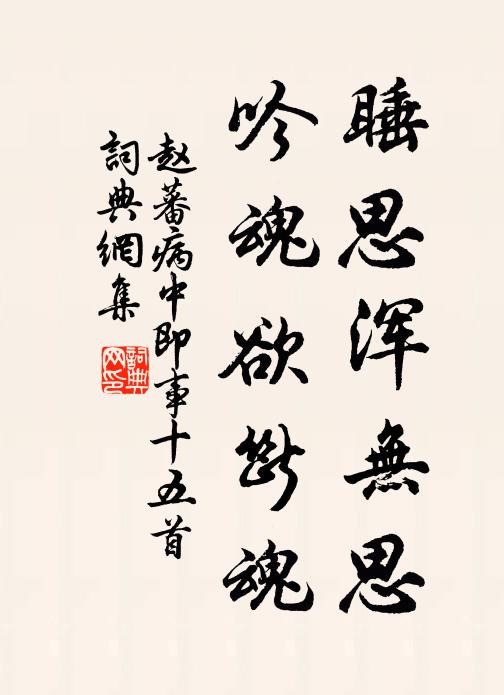 睡思浑無思
吟魂欲断魂
赵蕃病中即事十五首
詞典網集
詞典网印